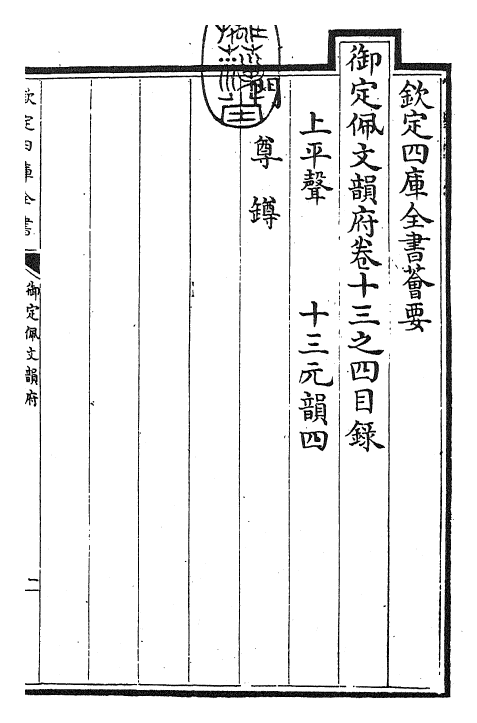 欽定四庫全書薈要
御定佩文韻府卷十三之四目録
上平聲 十三元韻四
門 尊 鐏
欽定四庫全書
御定佩文韻府
二